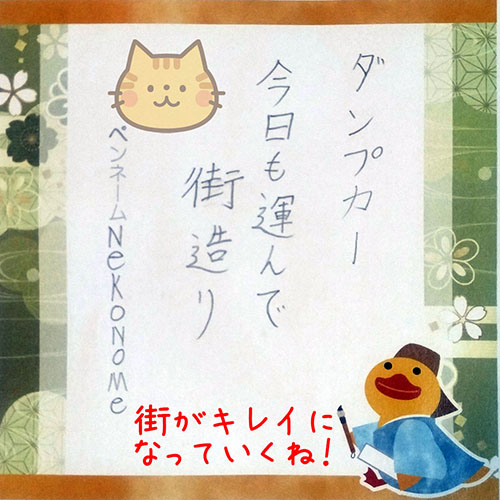 ダンプカー
今日も運んで
街造り
ペンネームNekonome
街がキレイに
なっていくね!